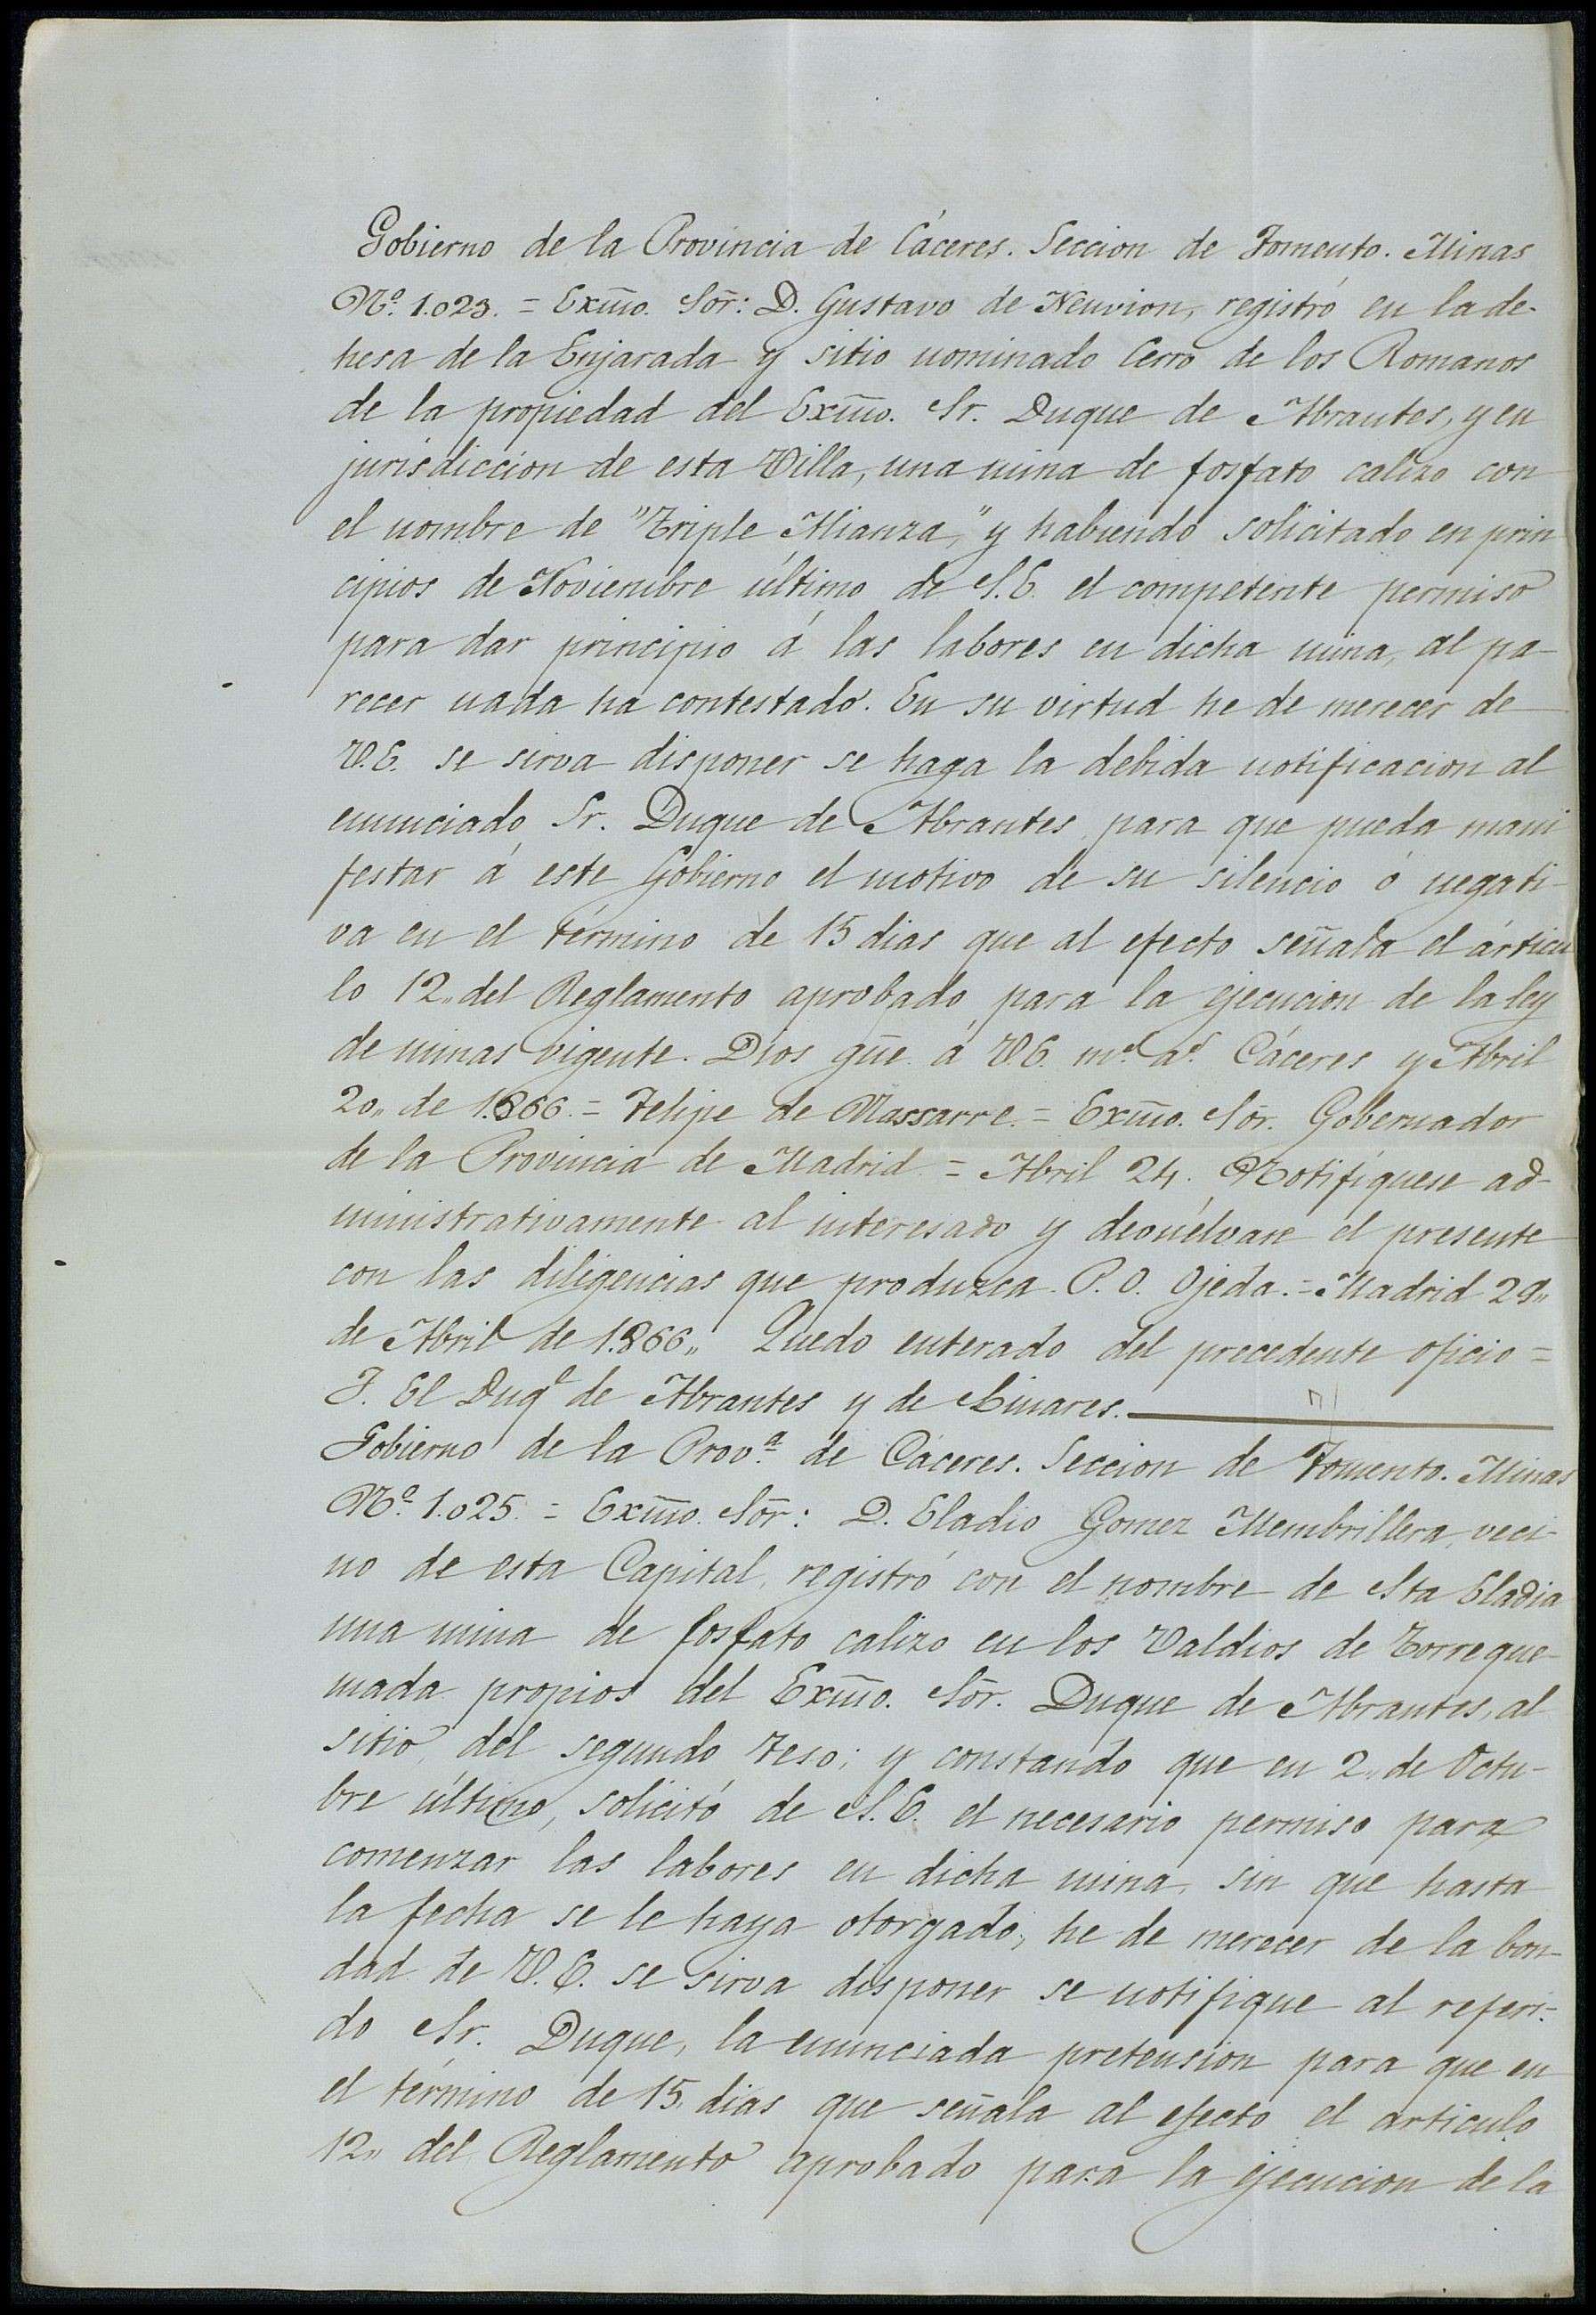 Gobierno de la Provincia de Cáceres. Seccion de Fomento. Minas
Nº. 1.023. = Exm̃o. Sõr: D. Gustavo de Neuvion, registró en la de-
hesa de la Enjarada y sitio nominado Cerro de los Romanos
de la propiedad del Exm̃o. Sr. Duque de Abrantes, y en
jurisdiccion de esta Villa, una mina de fosfato calizo con
el nombre de "Triple Alianza," y habiendo solicitado en prin
cipios de Noviembre último de S.E. el competente permiso
para dar principio á las labores en dicha mina, al pa-
recer nada ha contestado. En su virtud he de merecer de
V.E. se sirva disponer se haga la debida notificacion al
enunciado Sr. Duque de Abrantes para que pueda mani
festar á este Gobierno el motivo de su silencio ó negati-
va en el término de 15 dias que al efecto señala el árticu
lo 12,, del Reglamento aprobado para la ejecucion de la ley
de minas vigente. Dios gũe á V.E. mˢ. aˢ. Cáceres y Abril
20,, de 1.866. = Felipe de Massarre. = Exm̃o. Sõr. Gobernador
de la Provincia de Madrid = Abril 24. Notifíquese ad-
ministrativamente al interesado y devuélvase el presente
con las diligencias que produzca. P.O. Ojeda. = Madrid 29,,
de Abril de 1.866,, Quedo enterado del precedente oficio =
J. El Duqᵉ de Abrantes y de Linares.
Gobierno de la Provª. de Cáceres. Seccion de Fomento. Minas
Nº. 1.025. = Exm̃o. Sõr: D. Eladio Gomez Membrillera, veci-
no de esta Capital, registró con el nombre de Sta Eladia
una mina de fosfato calizo en los Valdios de Torreque-
mada propios del Exm̃o. Sõr. Duque de Abrantes, al
sitio del segundo teso; y constando que en 2,, de Octu-
bre último, solicitó de S.E. el necesario permiso para
comenzar las labores en dicha mina, sin que hasta
la fecha se le haya otorgado; he de merecer de la bon-
dad de V.E. se sirva disponer se notifique al referi-
do Sr. Duque, la enunciada pretension para que en
el término de 15 dias que señala al efecto el articulo
12,, del Reglamento aprobado para la ejecucion de la